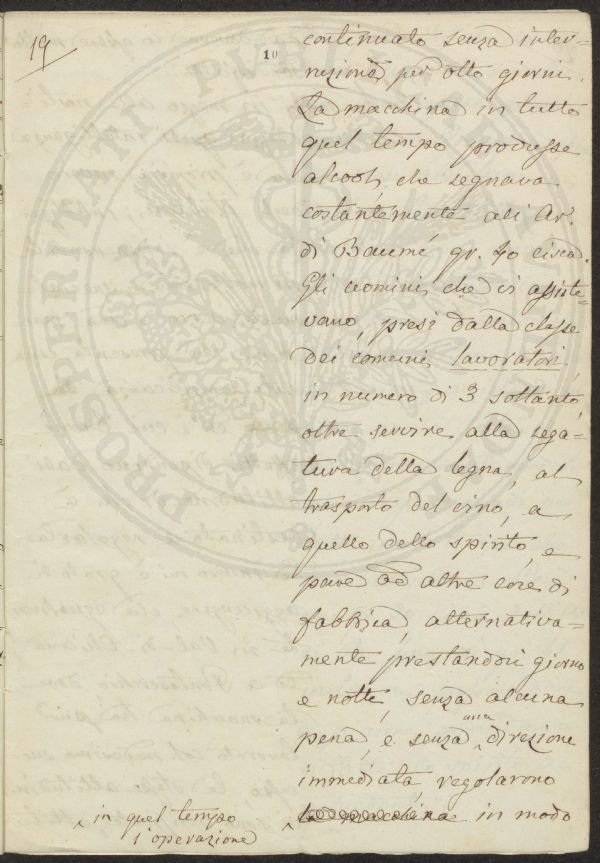 19
10
continuato senza inter-
ruzione per otto giorni.
La macchina in tutto
quel tempo produsse
alcool, che segnava
costantemente all'Ar.
di Baumé, gr. 40 circa.
Gli uomini, che ci assiste-
vano, presi dalla classe
dei comuni lavoratori,
in numero di 3 soltanto,
oltre servire alla sega-
tura della legna, al
trasporto del vino, a
quello dello spirito, e
pure ad altre cose di
fabbrica, alternativa-
mente prestandosi giorno
e notte, senza alcuna
pena, e senza una direzione
immediata, regolarono
la macchina in modo
in quel tempo
l'operazione
PROSPERITATI PUBLICAE